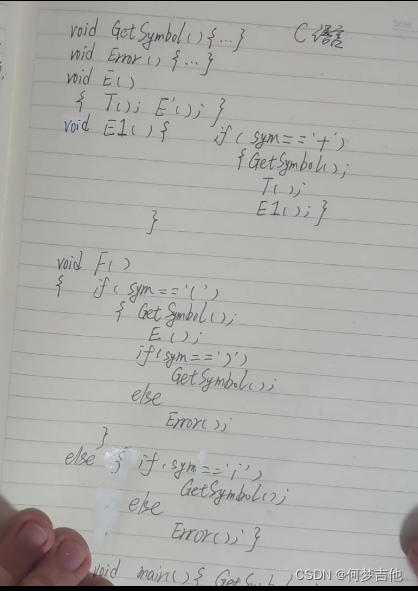 void GetSymbol(){...} C语言
void Error(){...}
void E()
{ T(); E'(); }
void E1(){ if(sym=='+')
{GetSymbol();
T();
E1();}
}
void F()
{ if(sym=='(')
{ GetSymbol();
E();
if(sym==')')
GetSymbol();
else
Error();
}
else { if(sym=='i')
GetSymbol();
else
Error();}
void main(){ GetSymbol
CSDN @何梦吉他